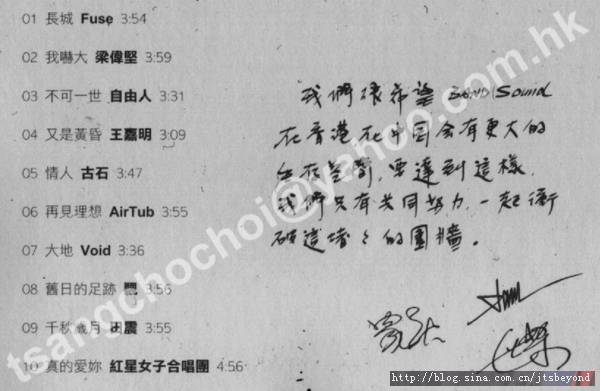 01 長城 Fuse 3:54
02 我嚇大 梁偉堅 3:59
03 不可一世 自由人 3:31
04 又是黃昏 王嘉明 3:09
05 情人 古石 3:47
06 再見理想 AirTub 3:55
07 大地 Void 3:36
08 舊日的足跡 3:56
09 千秋歲月 田震 3:55
10 真的愛妳 紅星女子合唱團 4:56
我們很希望 BAND Sound
在香港在中国会有更大的
生存空間,要達到這樣,
我們只有共同努力,一起衝
破這堵堵的圍牆。
家強
tsangchochoi@yahoo.com.hk
http://blog.sina.com.cn/jtsbeyond